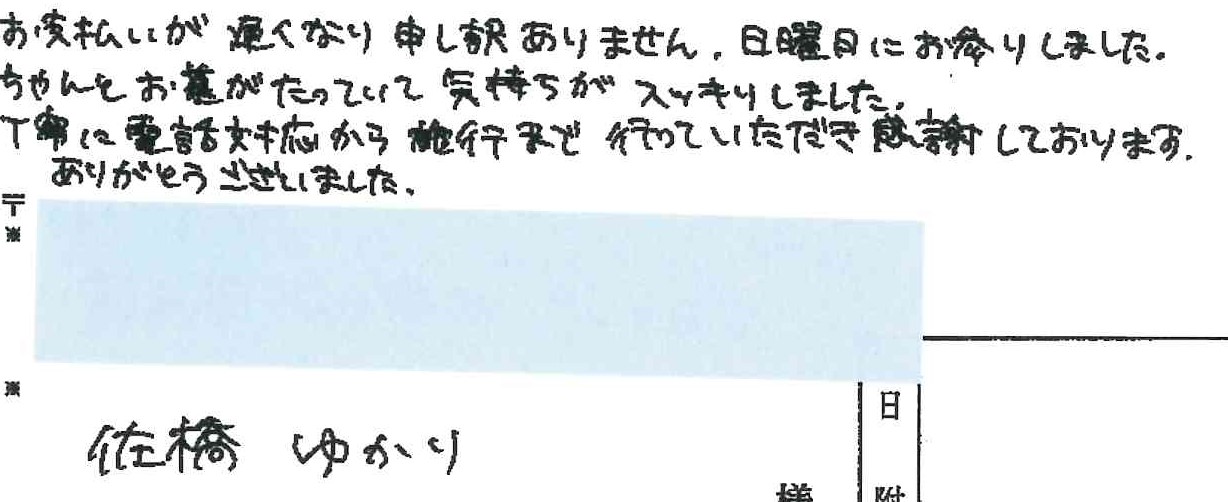 お支払いが遅くなり申し訳ありません。日曜日にお参りしました。
ちゃんとお墓がたっていて気持ちがスッキリしました。
丁寧に電話対応から施行まで行っていただき感謝しております。
ありがとうございました。
〒
※
※
佐橋 ゆかり
様
日附